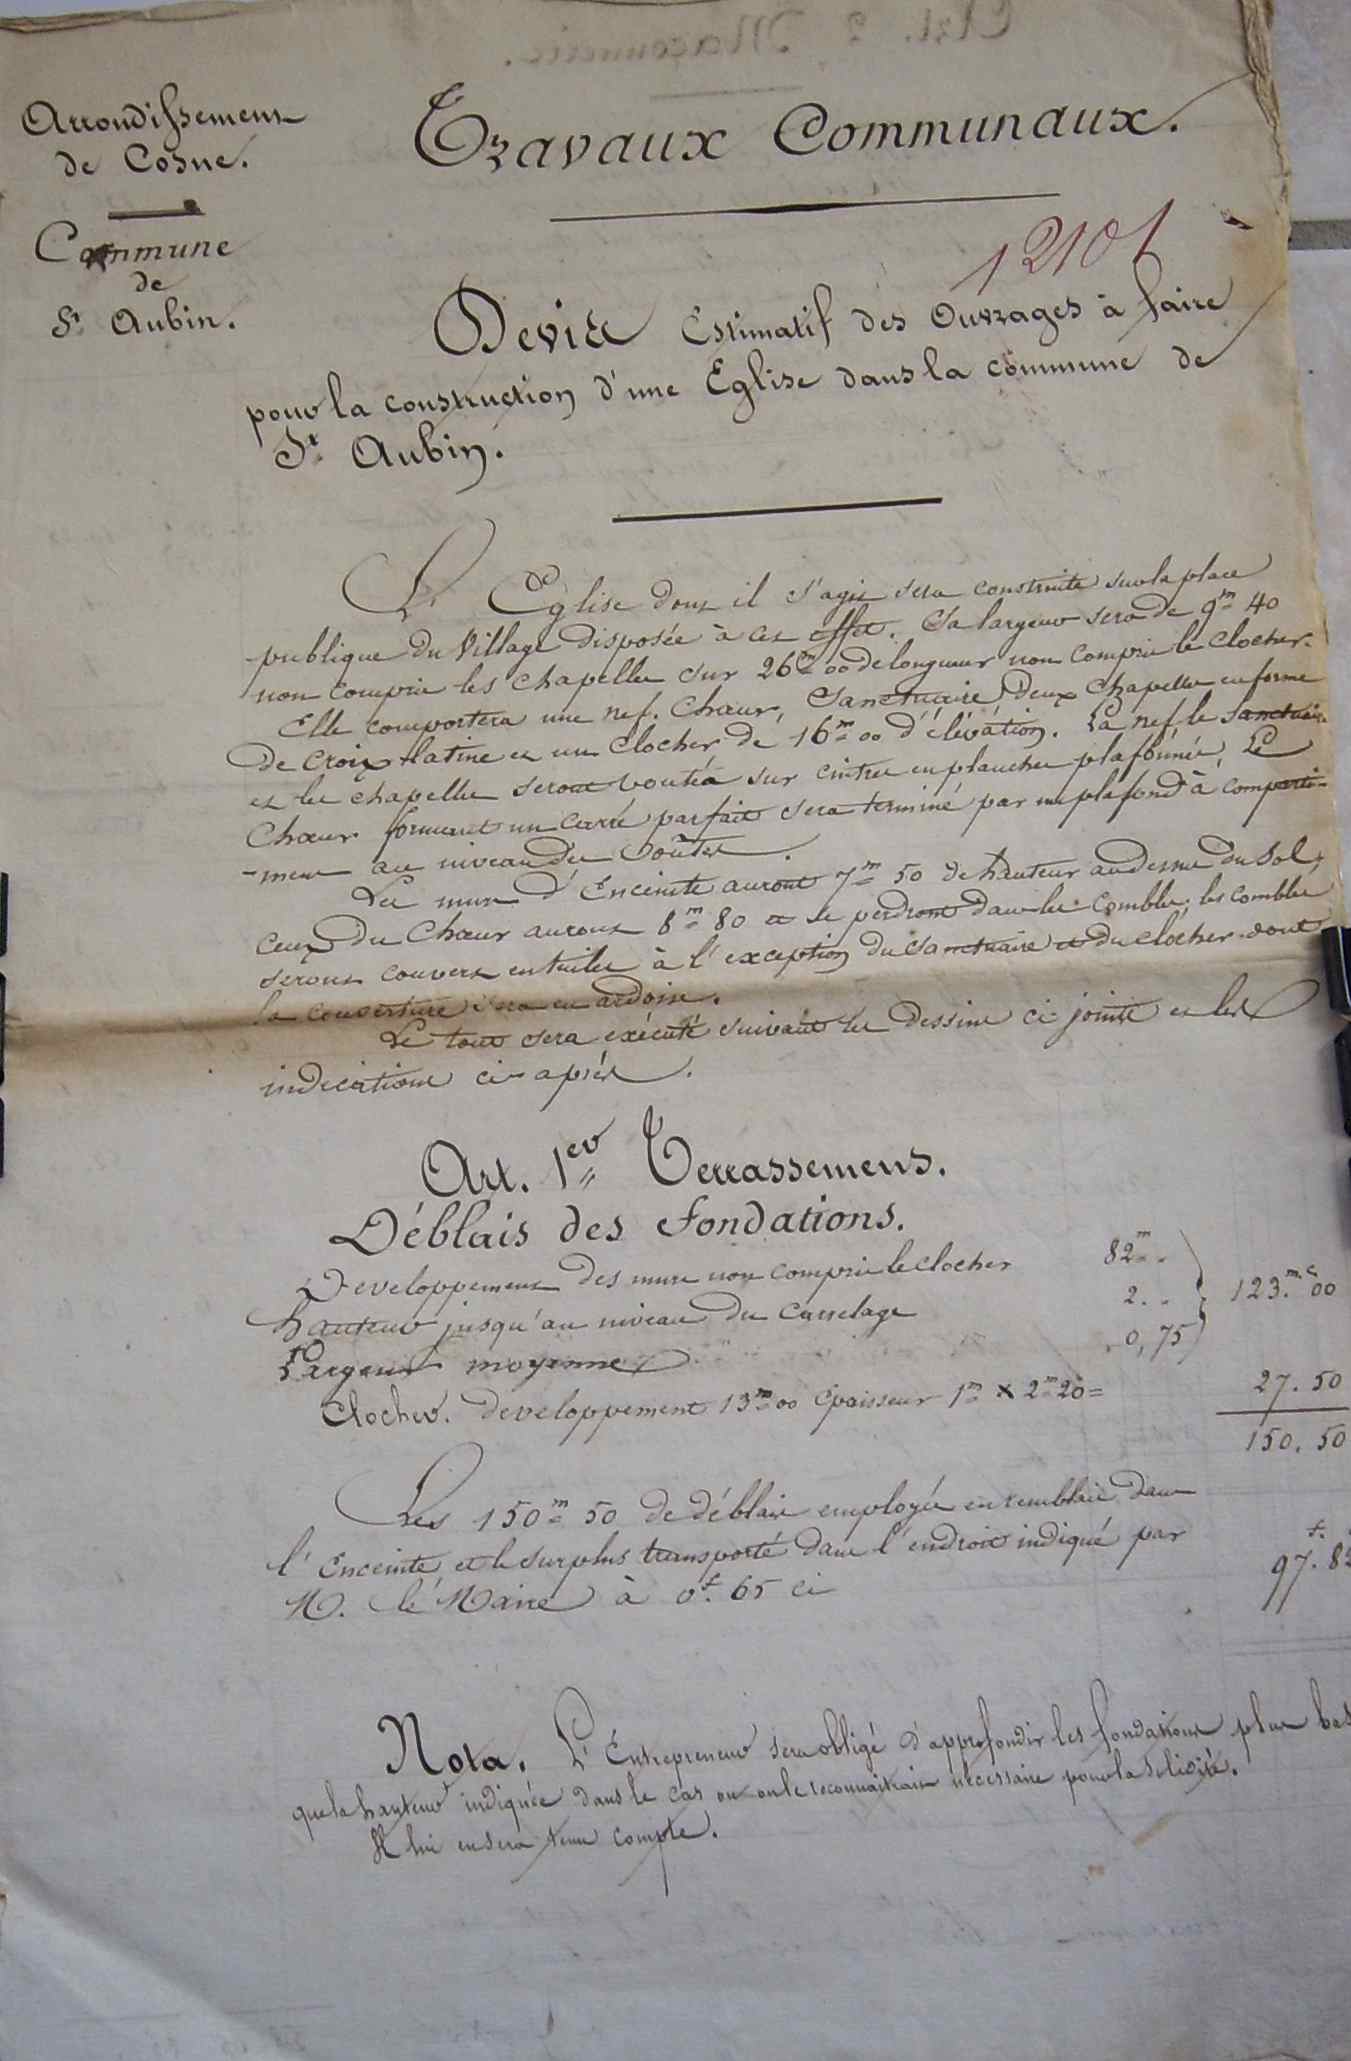 Art. 2 Maçonnerie.
Arrondissement
de Cosne.
Commune
de
St Aubin.
Travaux Communaux.
12101
Devis Estimatif des Ouvrages à faire
pour la construction d'une Eglise dans la commune de
St Aubin.
L'Eglise dont il s'agit sera construite sur la place
publique du Village disposée à cet effet. Sa largeur sera de 9m 40
non compris les chapelles sur 26m 00 de longueur non compris le clocher.
Elle comportera une nef. Chœur, Sanctuaire, Deux Chapelles en forme
de croix latine et un clocher de 16m 00 d'élévation. La nef le sanctuaire
et les chapelles seront voutés sur cintres en planches plafonnés, Le
Chœur formant un carré parfait sera terminé par un plafond à comparti-
-ment au niveau des Voûtes.
Les murs d'Enceinte auront 7m 50 de hauteur au dessus du Sol,
ceux du Chœur auront 8m 80 et se perdront dans les combles. les combles
seront couverts en tuiles à l'exception du Sanctuaire et du clocher dont
la couverture sera en ardoise.
Le tout sera exécuté suivant les dessins ci-joints et les
indications ci-après.
Art. 1er Terrassemens.
Déblais des fondations.
Developpement des murs non compris le clocher 82m "
hauteur jusqu'au niveau du carrelage 2. " 123.m.c 00
Largeur moyenne 0,75
Clocher. developpement 13m 00 épaisseur 1m x 2m 20 = 27. 50
150. 50
Les 150m 50 de déblais employés en remblais dans
l'Enceinte et le surplus transporté dans l'endroit indiqué par
M. le Maire à 0f. 65 ci 97. 82
Nota. L'Entrepreneur sera obligé d'approfondir les fondations plus bas
que la hauteur indiquée dans le cas ou on le reconnaitrait nécessaire pour la solidité.
Il lui en sera tenu compte.